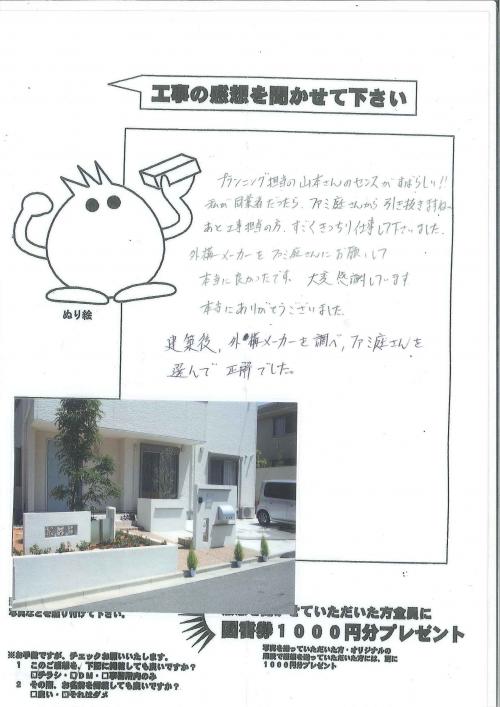 工事の感想を聞かせて下さい
プランニング担当の山本さんのセンスがすばらしい!!
私が同業者だったら、ファミ庭さんから引き抜きますね〜
あと工事担当の方、すごくきっちり仕事して下さいました。
外構メーカーをファミ庭さんにお願いして
本当に良かったです。 大変感謝しています
本当にありがとうございました。
ぬり絵
建築後、外構メーカーを調べ、ファミ庭さんを
選んで正解でした。
写真などを貼り付けて下さい。
せていただいた方全員に
図書券1000円分プレゼント
※お手数ですが、チェックお願いいたします。
1 このご感想を、下記に掲載しても良いですか?
□チラシ・□DM・□事務所内のみ
2 その際、お名前を掲載しても良いですか?
□良い・□それはダメ
写真を送っていただいた方・オリジナルの
用紙で感想を送っていただいた方には、更に
1000円分プレゼント